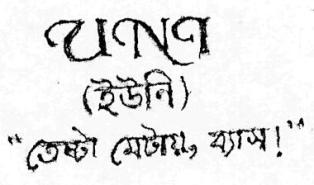 (ইউনি)
“তেষ্টা মেটায়, ব্যাস!”